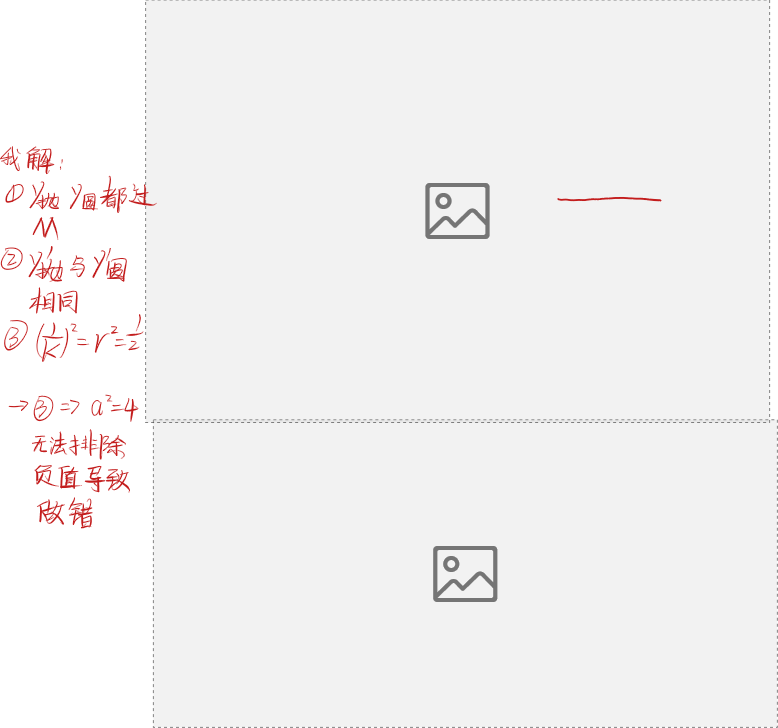 我解：
① y抛 y圆都过
M
② y'抛与y'圆
相同
③ (1/K)²=r²=1/2
→③=> a²=4
无法排除
负值导致
做错